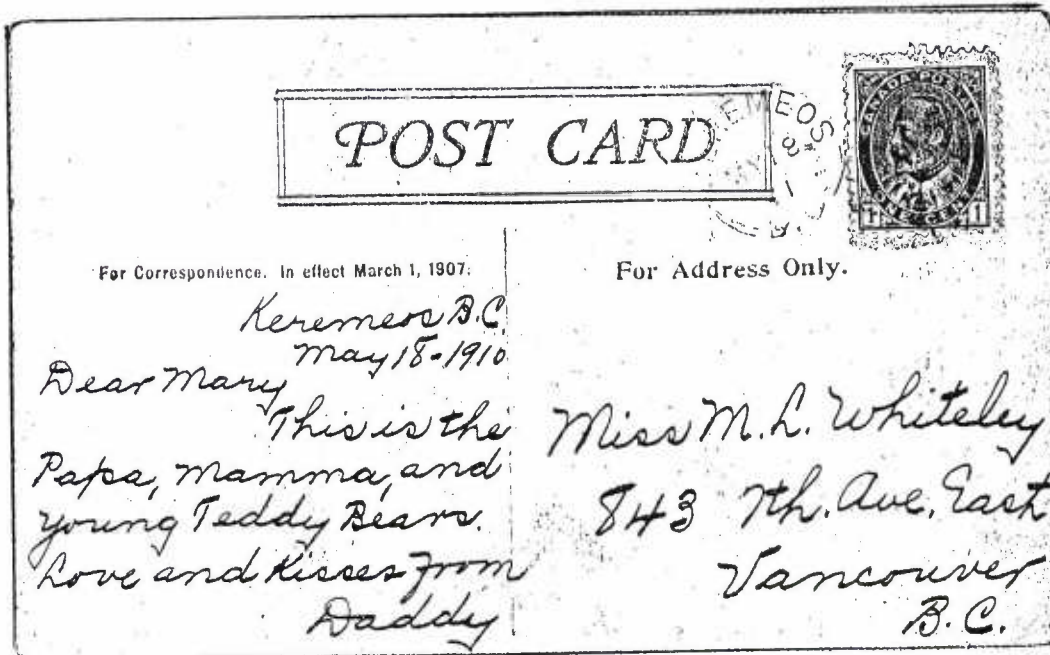 POST CARD
EMEOS
B.C.
CANADA POSTAGE
ONE CENT
1 1
For Correspondence. In effect March 1, 1907.
Keremeos B.C.
May 18-1910
Dear Mary
This is the
Papa, Mamma, and
young Teddy Bears.
Love and Kisses From
Daddy
For Address Only.
Miss M. L. Whiteley
843 7th. Ave. East
Vancouver
B.C.